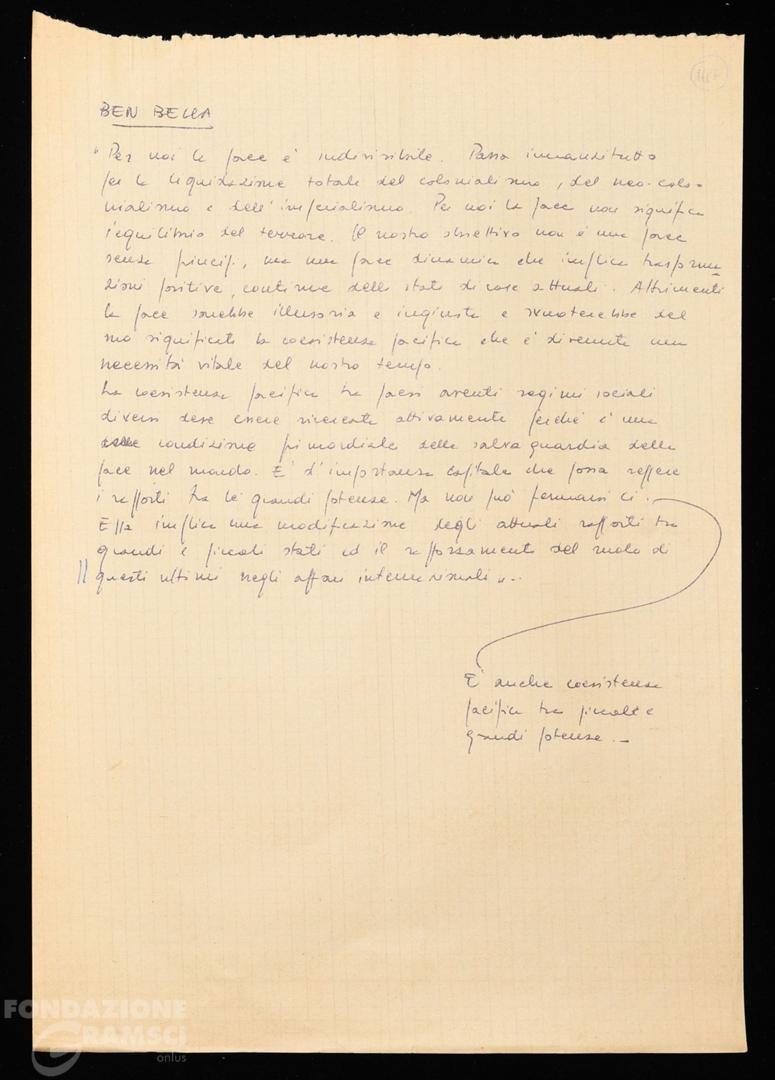 BEN BELLA
"Per noi la pace è indivisibile. Passa innanzitutto
per la liquidazione totale del colonialismo, del neo-colo-
nialismo e dell'imperialismo. Per noi la pace non significa
l'equilibrio del terrore. Il nostro obiettivo non è una pace
senza principi, ma una pace dinamica che implica trasforma
zioni positive, continue dello stato di cose attuali. Altrimenti
la pace sarebbe illusoria e ingiusta e svuoterebbe del
suo significato la coesistenza pacifica che è divenuta una
necessità vitale del nostro tempo.
La coesistenza pacifica tra paesi aventi regimi sociali
diversi deve essere ricercata attivamente perché è una
condizione primordiale della salvaguardia della
pace nel mondo. E' d'importanza capitale che possa reggere
i rapporti tra le grandi potenze. Ma non può fermarsi ci.
Essa implica una modificazione degli attuali rapporti tra
grandi e piccoli stati ed il rafforzamento del ruolo di
questi ultimi negli affari internazionali"..
E' anche coesistenza
pacifica tra piccole e
grandi potenze. —
FONDAZIONE
GRAMSCI
onlus